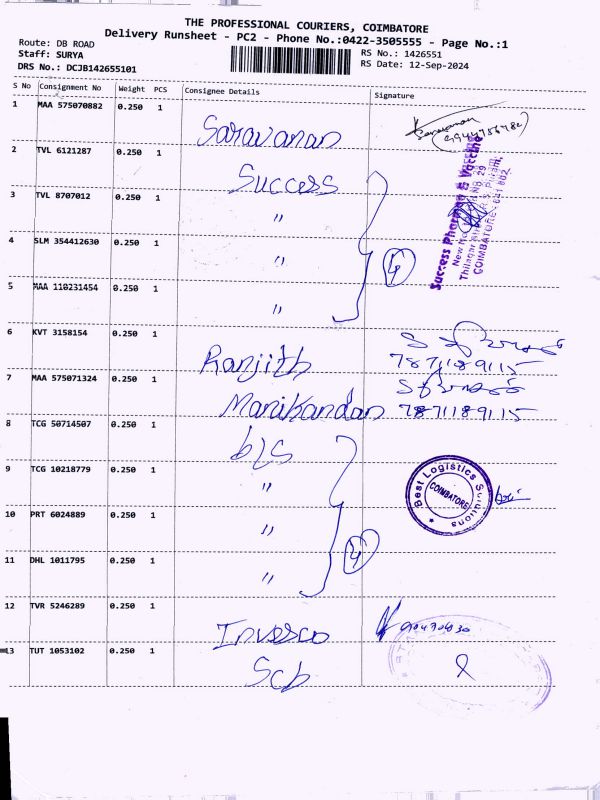 THE PROFESSIONAL COURIERS, COIMBATORE
Delivery Runsheet - PC2 - Phone No.:0422-3505555 - Page No.:1
Route: DB ROAD
RS No.: 1426551
Staff: SURYA
RS Date: 12-Sep-2024
DRS No.: DCJB142655101
S No Consignment No Weight PCS Consignee Details Signature
1 MAA 575070882 0.250 1 Saravanan
2 TVL 6121287 0.250 1 Success
3 TVL 8707012 0.250 1 "
4 SLM 354412630 0.250 1 "
5 MAA 110231454 0.250 1 "
4
Success Pharma & Vaccine
COIMBATORE - 641 002
6 KVT 3158154 0.250 1 Ranjith 7871189115
7 MAA 575071324 0.250 1 Manikandan 7871189115
8 TCG 50714507 0.250 1 bLS
9 TCG 10218779 0.250 1 "
Best Logistics Solutions
COIMBATORE
10 PRT 6024889 0.250 1 "
4
11 DHL 1011795 0.250 1 "
12 TVR 5246289 0.250 1 Invesco
13 TUT 1053102 0.250 1 Scb